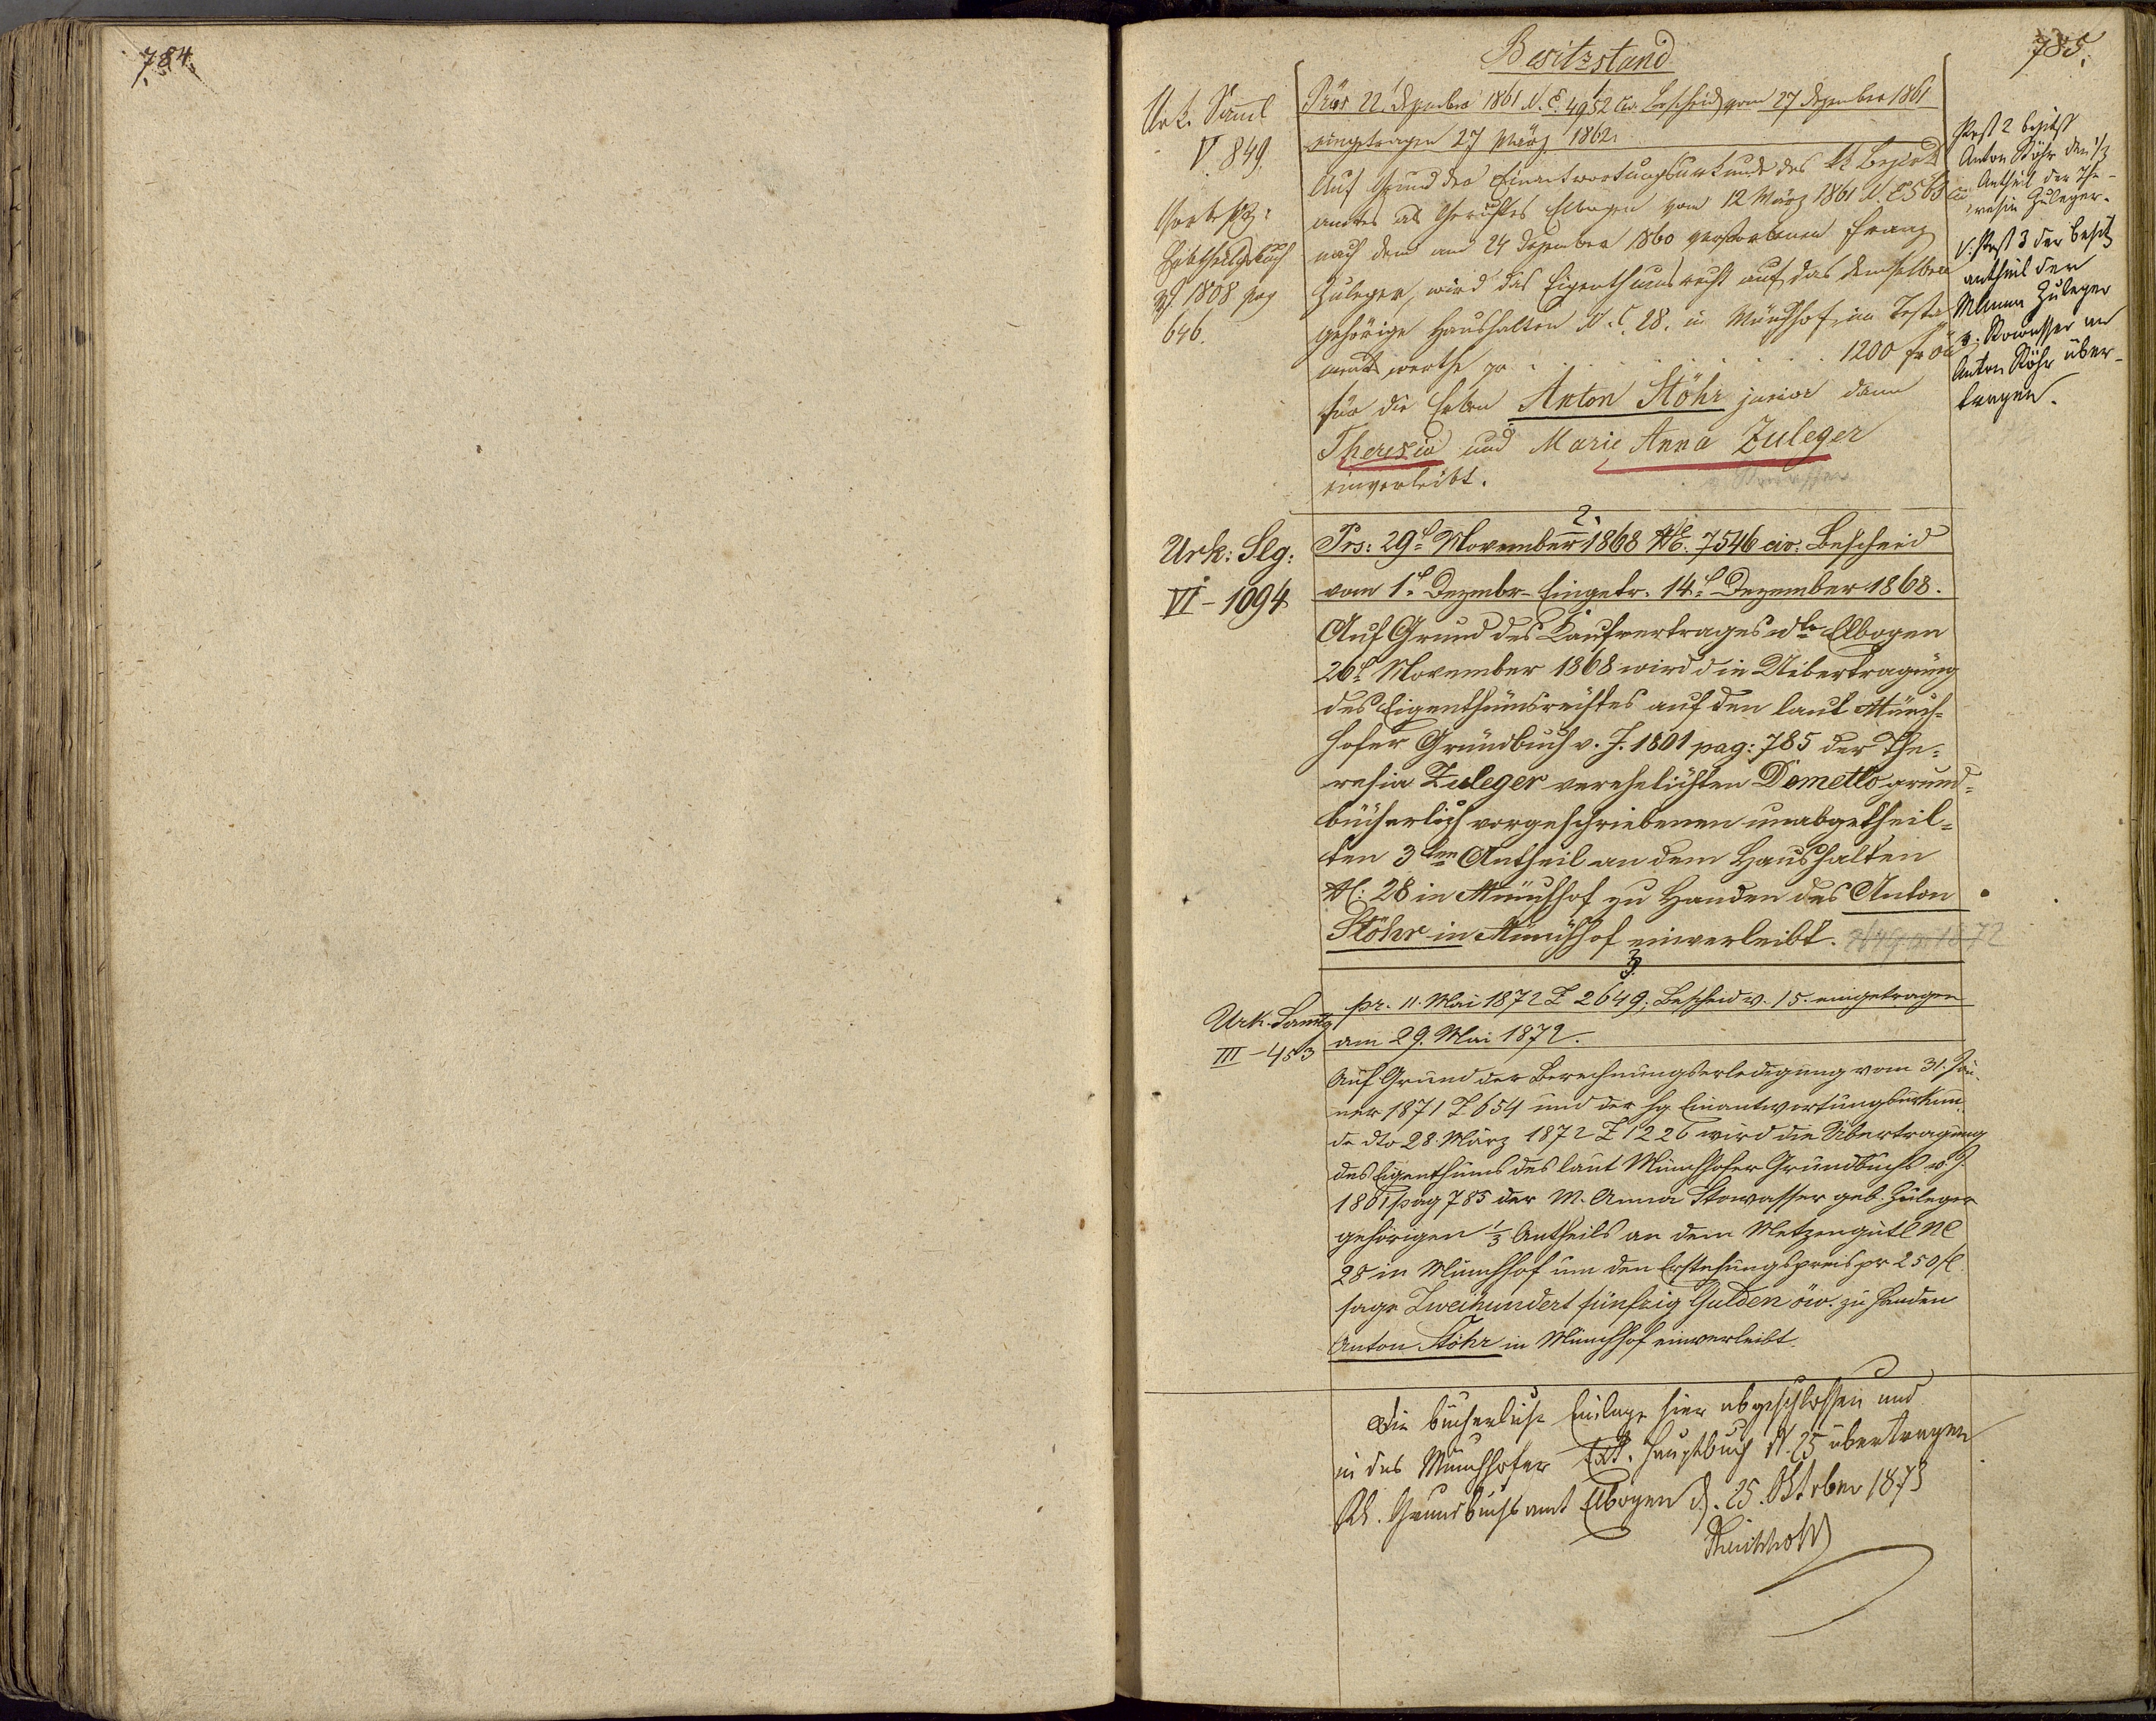 784.
785.
Besitzstand
Urk. Saml
V. 849.
Vorbesitz:
buch
v. 1808 pag
646.
1
Präs 22 Dezember 1861 N. E. 4952 civ. Bescheid vom 27 Dezember 1861
eingetragen 27 März 1862.
Auf Grund der Einantwortungsurkunde des kk Bezirks
amtes als Gerichtes Elbogen vom 12 März 1861 N. E 563 civ
nach dem am 24 Dezember 1860 verstorbenen Franz
Zuleger, wird das Eigenthumsrecht auf das demselben
gehörige Haushalten N. C. 28. in Münchhof, im Testa
ments werthe pr . . . . . . 1200 fr öW
für die Erben Anton Stöhr junior dann
Theresia und Marie Anna Zuleger
einverleibt.
Post 2 besitzt
Anton Stöhr den 1/3
Antheil der The-
resia Zuleger.
V. Post 3 der Besitz
antheil der
M Anna Zuleger
v. Stowasser an
Anton Stöhr über-
tragen.
2.
Urk: Slg:
VI - 1094
Prs: 29t November 1868 NE. 7546 civ. Bescheid
vom 1t Dezembr Eingetr. 14t Dezember 1868.
Auf Grund des Kaufvertrages dto Elbogen
26t November 1868 wird die Uibertragung
des Eigenthumsrechtes auf den laut Münch-
hofer Grundbuch v. J. 1801 pag: 785 der The-
resia Zuleger verehelichten Dometto grund-
bücherlich vorgeschriebenen unabgetheil-
ten 3ten Antheil an dem Haushalten
NC. 28 in Münchhof zu Handen des Anton
Stöhr in Münchhof einverleibt.
3.
Urk. Samlg
III - 453
pr. 11. Mai 1872 Z 2649; Bescheid v. 15. eingetragen
am 29. Mai 1872.
Auf Grund der Berechnungserledigung vom 31. Jän-
ner 1871 Z 654 und der hg Einantwortungsurkun-
de dto 28. März 1872 Z 1226 wird die Übertragung
des Eigenthums des laut Münchhofer Grundbuchs v. J.
1801 pag 785 der M. Anna Stowasser geb. Zuleger
gehörigen 1/3 Antheils an dem Metzengütl NC
28 in Münchhof um den Erstehungspreis pr 250 fl.
sage Zweihundert fünfzig Gulden öw. zu Handen
Anton Stöhr in Münchhof einverleibt.
Die bücherliche Einlage hier abgeschlossen und
in das Münchhofer Hauptbuch N. 25 übertragen
KK. Grundbuchsamt Elbogen d. 25. Oktober 1873